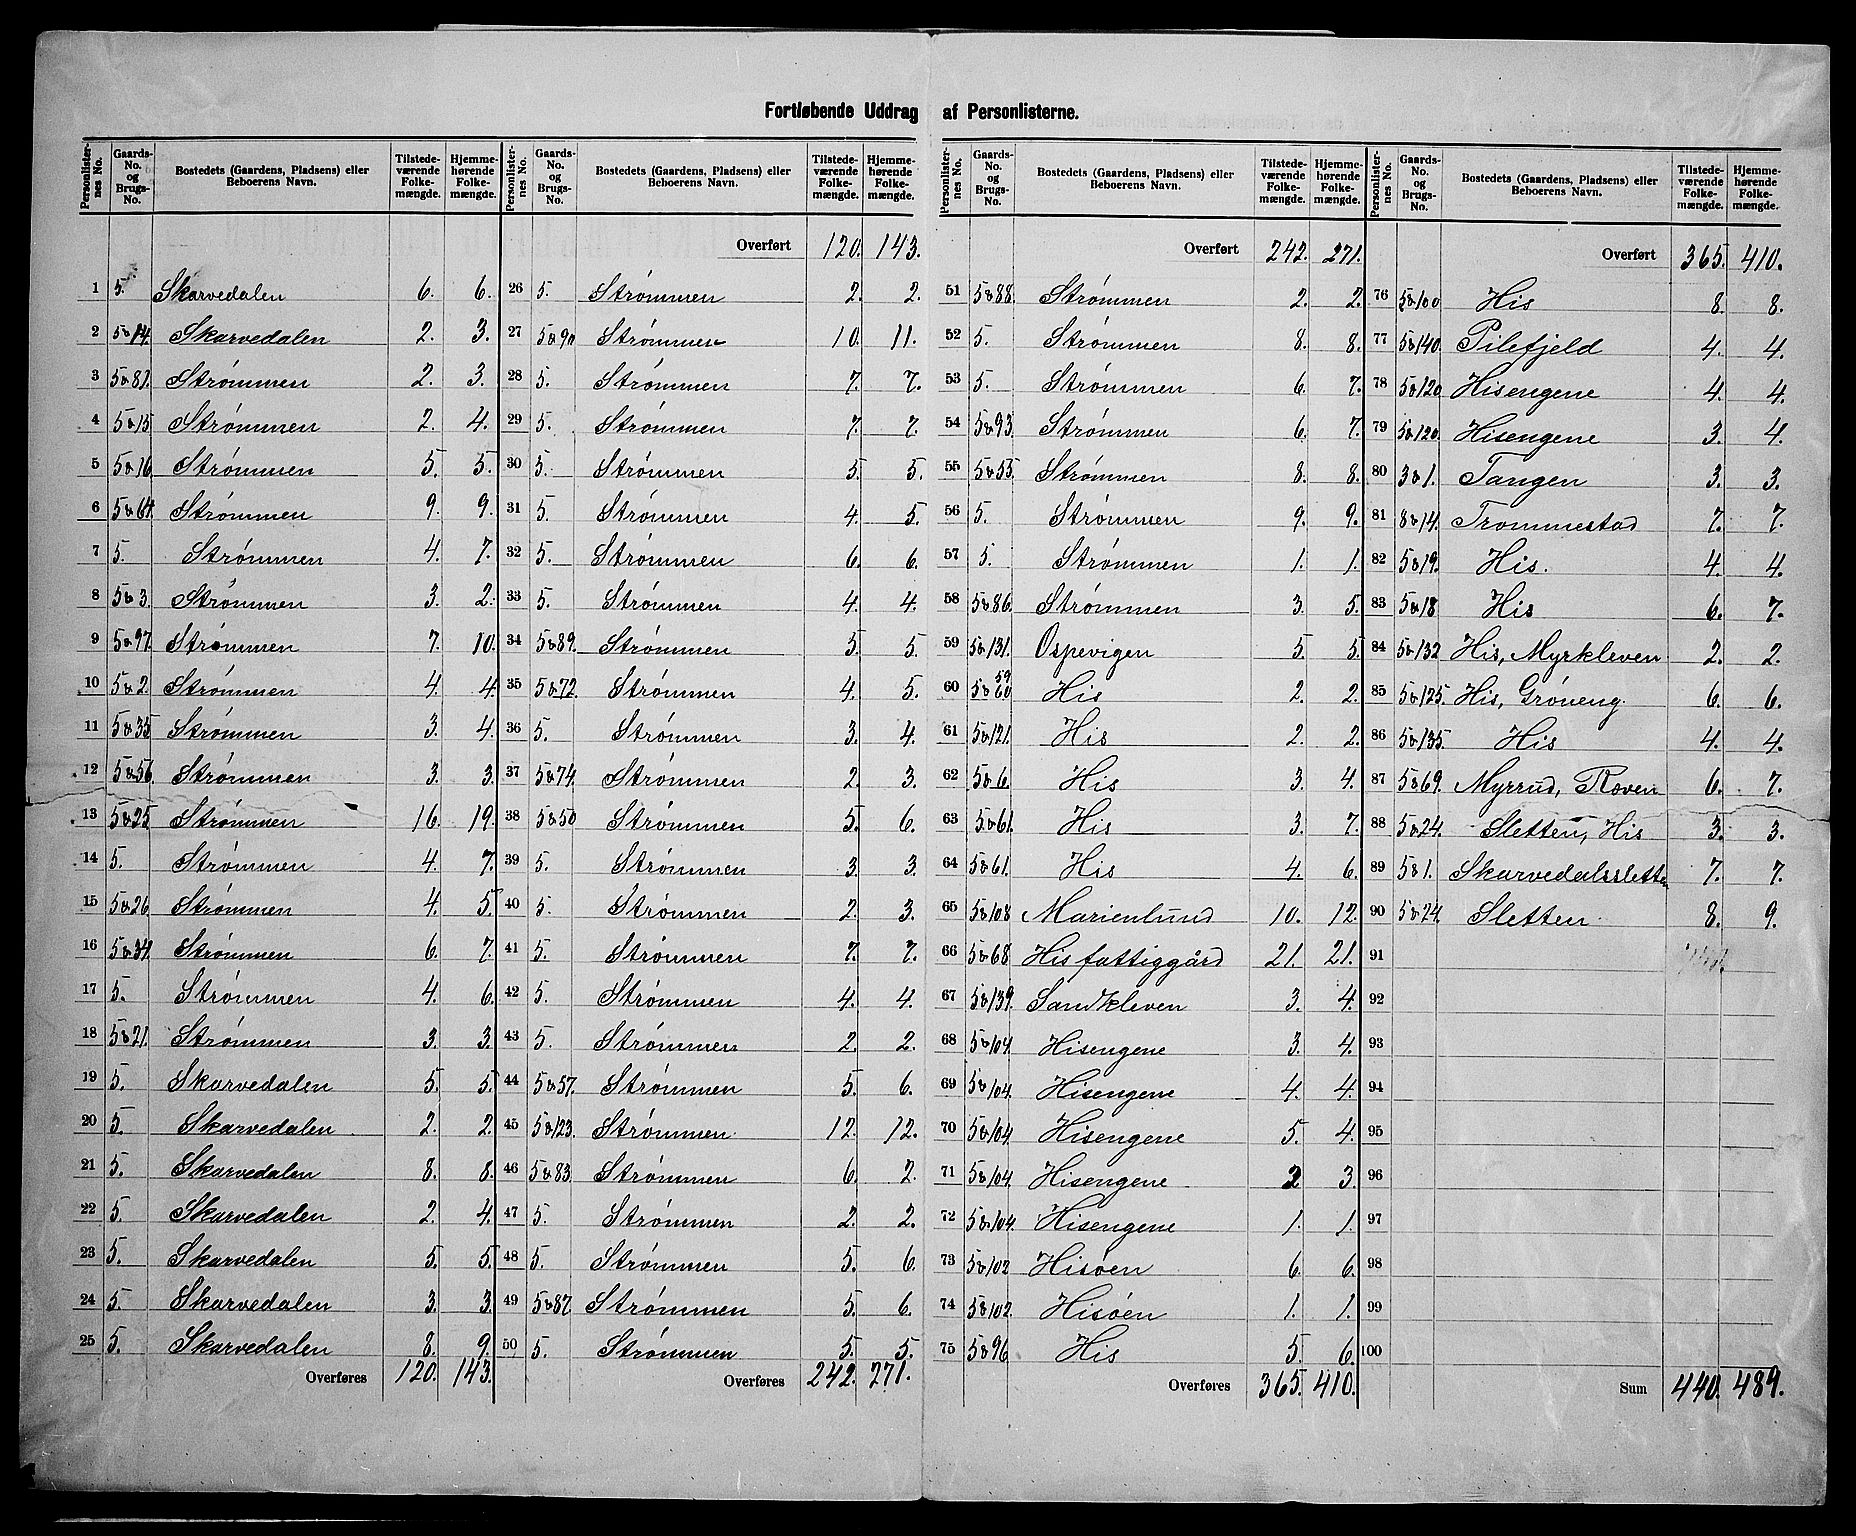 Fortløbende Uddrag af Personlisterne.
Personlister-nes No. | Gaards-No. og Brugs-No. | Bostedets (Gaardens, Pladsens) eller Beboerens Navn. | Tilstede-værende Folke-mængde. | Hjemme-hørende Folke-mængde.
1 5. Skarvedalen 6. 6.
2 5 & 14. Skarvedalen 2. 3.
3 5 & 81. Strømmen 2. 3.
4 5 & 15 Strømmen 2. 4.
5 5 & 16 Strømmen 5. 5.
6 5 & 64. Strømmen 9. 9.
7 5. Strømmen 4. 7.
8 5 & 3. Strømmen 3. 2.
9 5 & 97. Strømmen 7. 10.
10 5 & 2. Strømmen 4. 4.
11 5 & 35 Strømmen 3. 4.
12 5 & 56. Strømmen 3. 3.
13 5 & 25 Strømmen 16. 19.
14 5. Strømmen 4. 7.
15 5 & 26 Strømmen 4. 5.
16 5 & 34. Strømmen 6. 7.
17 5. Strømmen 4. 6.
18 5 & 21. Strømmen 3. 3.
19 5. Skarvedalen 5. 5.
20 5. Skarvedalen 2. 2.
21 5. Skarvedalen 8. 8.
22 5. Skarvedalen 2. 4.
23 5. Skarvedalen 5. 5.
24 5. Skarvedalen 3. 3.
25 5. Skarvedalen 8. 9.
Overføres 120. 143.
Personlister-nes No. | Gaards-No. og Brugs-No. | Bostedets (Gaardens, Pladsens) eller Beboerens Navn. | Tilstede-værende Folke-mængde. | Hjemme-hørende Folke-mængde.
Overført 120. 143.
26 5. Strømmen 2. 2.
27 5 & 90 Strømmen 10. 11.
28 5. Strømmen 7. 7.
29 5. Strømmen 7. 7.
30 5. Strømmen 5. 5.
31 5. Strømmen 4. 5.
32 5. Strømmen 6. 6.
33 5. Strømmen 4. 4.
34 5 & 89. Strømmen 5. 5.
35 5 & 72. Strømmen 4. 5.
36 5. Strømmen 3. 4.
37 5 & 74. Strømmen 2. 3.
38 5 & 50 Strømmen 5. 6.
39 5. Strømmen 3. 3.
40 5. Strømmen 2. 3.
41 5. Strømmen 7. 7.
42 5. Strømmen 4. 4.
43 5. Strømmen 2. 2.
44 5 & 57. Strømmen 5. 6.
45 5 & 123. Strømmen 12. 12.
46 5 & 83. Strømmen 6. 2.
47 5. Strømmen 2. 2.
48 5. Strømmen 5. 6.
49 5 & 87. Strømmen 5. 6.
50 5. Strømmen 5. 5.
Overføres 242. 271.
Personlister-nes No. | Gaards-No. og Brugs-No. | Bostedets (Gaardens, Pladsens) eller Beboerens Navn. | Tilstede-værende Folke-mængde. | Hjemme-hørende Folke-mængde.
Overført 242. 271.
51 5 & 88. Strømmen 2. 2.
52 5. Strømmen 8. 8.
53 5. Strømmen 6. 7.
54 5 & 93. Strømmen 6. 7.
55 5 & 55. Strømmen 8. 8.
56 5. Strømmen 9. 9.
57 5. Strømmen 1. 1.
58 5 & 86. Strømmen 3. 5.
59 5 & 131. Ospevigen 5. 5.
60 5 & 59 60 His 2. 2.
61 5 & 121. His 2. 2.
62 5 & 6. His 3. 4.
63 5 & 61. His 3. 7.
64 5 & 61. His 4. 6.
65 5 & 108 Marienlund 10. 12.
66 5 & 68. His fattiggård 21. 21.
67 5 & 139. Sandkleven 3. 4.
68 5 & 104. Hisengene 3. 4.
69 5 & 104. Hisengene 4. 4.
70 5 & 104. Hisengene 5. 4.
71 5 & 104. Hisengene 2 3.
72 5 & 104. Hisengene 1. 1.
73 5 & 102 Hisøen 6. 6.
74 5 & 102. Hisøen 1. 1.
75 5 & 96 His 5. 6.
Overføres 365. 410.
Personlister-nes No. | Gaards-No. og Brugs-No. | Bostedets (Gaardens, Pladsens) eller Beboerens Navn. | Tilstede-værende Folke-mængde. | Hjemme-hørende Folke-mængde.
Overført 365. 410.
76 5 & 100 His 8. 8.
77 5 & 140. Pilefjeld 4. 4.
78 5 & 120 Hisengene 4. 4.
79 5 & 120. Hisengene 3. 4.
80 3 & 1. Tangen 3. 3.
81 8 & 14. Trommestad 7. 7.
82 5 & 19. His. 4. 4.
83 5 & 18 His 6. 7.
84 5 & 132 His, Myrkleven 2. 2.
85 5 & 125. His, Grøneng. 6. 6.
86 5 & 135. His 4. 4.
87 5 & 69. Myrrud, Roven 6. 7.
88 5 & 24. Sletten, His 3. 3.
89 5 & 1. Skarvedalssletten 7. 7.
90 5 & 24. Sletten 8. 9.
91
92
93
94
95
96
97
98
99
100
Sum 440. 489.